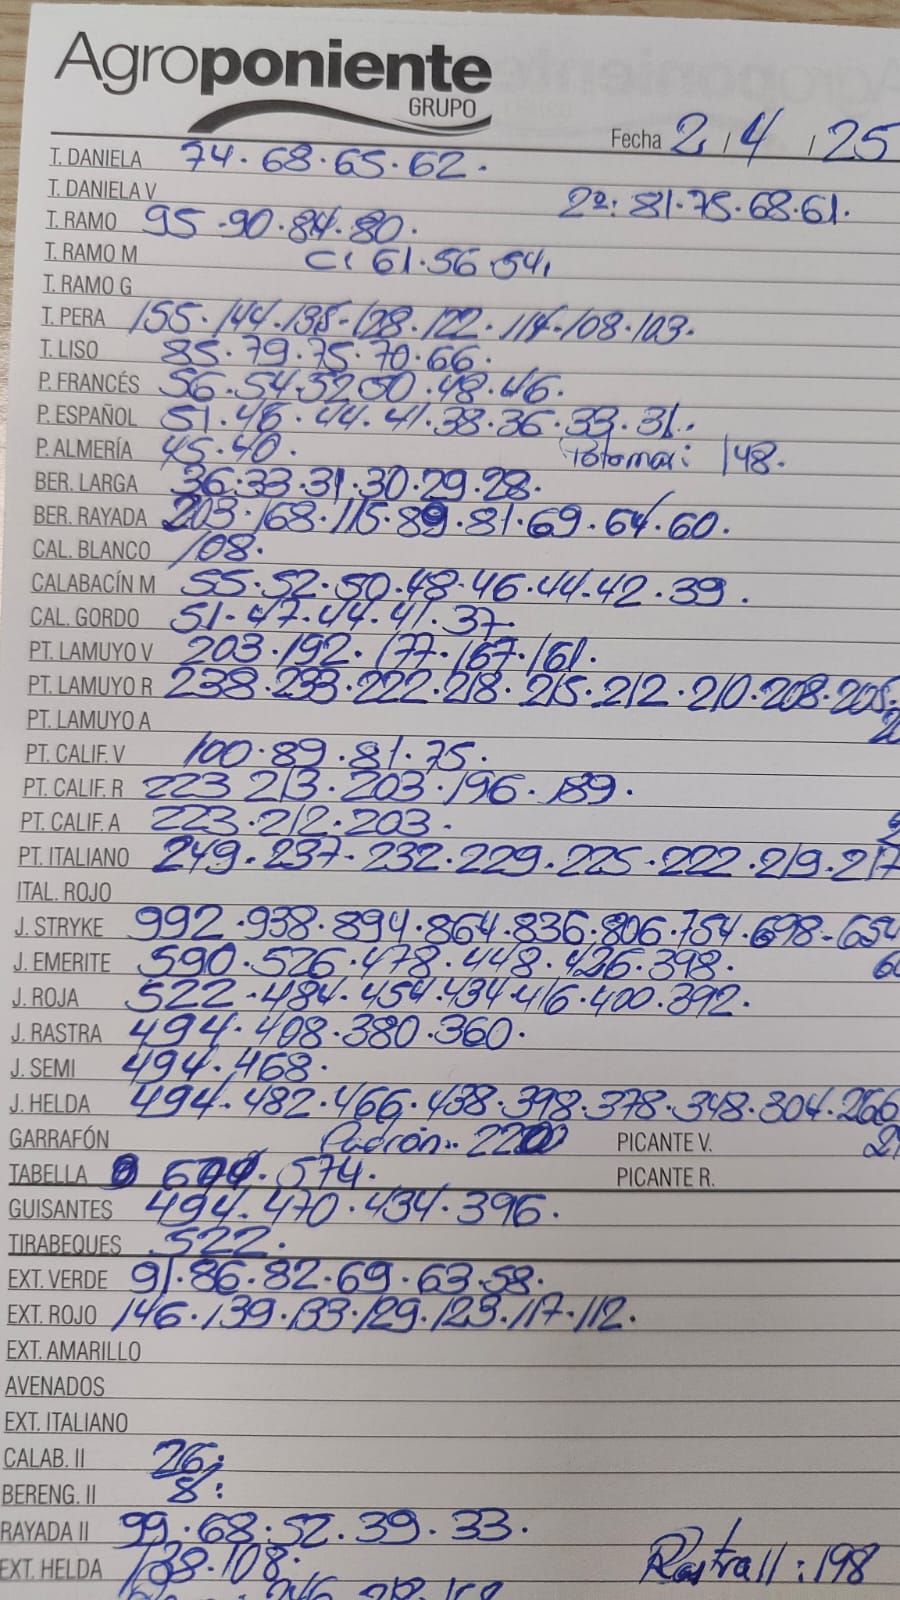 Agroponiente
GRUPO
Fecha 2/4/25
T. DANIELA 74.68.65.62.
T. DANELA V 2ª: 81.75.68.61.
T. RAMO 95.90.84.80.
T. RAMO M C: 61.56.54.
T. RAMO G
T. PERA 155.144.138-128.122.114.108.103.
T. LISO 85.79.75.70.66.
P. FRANCÉS 56.54.52.50.48.46.
P. ESPAÑOL 51.46.44.41.38.36.33.31.
P. ALMERÍA 45.40. 148.
BER. LARGA 36.33.31.30.29.28.
BER. RAYADA 203.168.115.89.81.69.64.60.
CAL. BLANCO 108.
CALABACÍN M 55.52.50.48.46.44.42.39.
CAL. GORDO 51.47.44.41.37.
PT. LAMUYO V 203.192.177.167.161.
PT. LAMUYO R 238.233.222.218.215.212.210.208.205.
PT. LAMUYO A
PT. CALIF. V 100.89.81.75.
PT. CALIF. R 223 213.203.196.189.
PT. CALIF. A 223.212.203.
PT. ITALIANO 249.237.232.229.225.222.219.217
ITAL. ROJO
J. STRYKE 992.938.894.864.836.806.754.698-654
J. EMERITE 590.526.478.448.426.398.
J. ROJA 522.484.454.434.416.400.392.
J. RASTRA 494.408.380.360.
J. SEMI 494.468.
J. HELDA 494.482.466.438.398.378.348.304.266
GARRAFÓN Padrón: 2200 PICANTE V.
TABELLA 574. PICANTE R.
GUISANTES 494.470.434.396.
TIRABEQUES 522.
EXT. VERDE 91.86.82.69.63.58.
EXT. ROJO 146.139.133.129.123.117.112.
EXT. AMARILLO
AVENADOS
EXT. ITALIANO
CALAB. II 26.
BERENG. II 8.
RAYADA II 99.68.52.39.33.
EXT. HELDA 138.108. Rastra II: 198